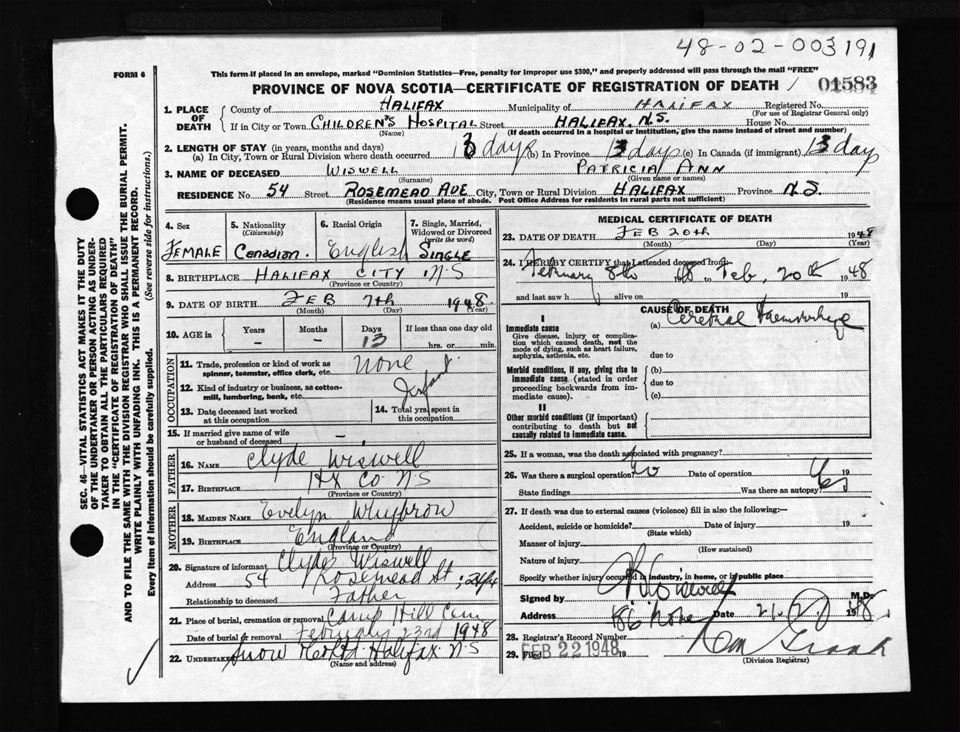 48-02-003191
FORM 6
This form if placed in an envelope, marked "Dominion Statistics—Free, penalty for improper use $300," and properly addressed will pass through the mail "FREE"
PROVINCE OF NOVA SCOTIA—CERTIFICATE OF REGISTRATION OF DEATH 01583
1. PLACE OF DEATH
County of HALIFAX Municipality of HALIFAX Registered No.
(For use of Registrar General only)
If in City or Town CHILDREN'S HOSPITAL Street HALIFAX, N.S. House No.
(Name) (If death occurred in a hospital or institution, give the name instead of street and number)
2. LENGTH OF STAY (in years, months and days)
(a) In City, Town or Rural Division where death occurred 13 days (b) In Province 13 days (c) In Canada (if immigrant) 13 days
3. NAME OF DECEASED WISWELL PATRICIA ANN
(Surname) (Given name or names)
RESIDENCE No. 54 Street ROSEMEAD AVE City, Town or Rural Division HALIFAX Province N.S.
(Residence means usual place of abode. Post Office Address for residents in rural parts not sufficient)
4. Sex
FEMALE
5. Nationality
(Citizenship)
Canadian.
6. Racial Origin
English
7. Single, Married, Widowed or Divorced
(write the word)
SINGLE
8. BIRTHPLACE HALIFAX CITY N S
(Province or Country)
9. DATE OF BIRTH FEB 7th 1948
(Month) (Day) (Year)
10. AGE in
Years
–
Months
–
Days
13
If less than one day old
hrs. or min.
OCCUPATION
11. Trade, profession or kind of work as spinner, teamster, office clerk, etc. None
12. Kind of industry or business, as cotton-mill, lumbering, bank, etc. Infant
13. Date deceased last worked at this occupation
14. Total yrs. spent in this occupation
15. If married give name of wife or husband of deceased –
FATHER
16. NAME Clyde Wiswell
17. BIRTHPLACE Hfx Co N S
(Province or Country)
MOTHER
18. MAIDEN NAME Evelyn Whybrow
19. BIRTHPLACE England
(Province or Country)
20. Signature of informant Clyde Wiswell
Address 54 Rosemead St
Relationship to deceased Father
21. Place of burial, cremation or removal Camp Hill Cem
Date of burial or removal February 23rd 1948
22. Undertaker Snow & Co Ltd Halifax N S
(Name and address)
MEDICAL CERTIFICATE OF DEATH
23. DATE OF DEATH FEB 20th 1948
(Month) (Day) (Year)
24. I HEREBY CERTIFY that I attended deceased from
February 8th 48 to Feb, 20th 1948
and last saw h alive on 19
CAUSE OF DEATH
I
Immediate cause (a) Cerebral Haemorrhage
Give disease, injury or complication which caused death, not the mode of dying, such as heart failure, asphyxia, asthenia, etc.
due to
Morbid conditions, if any, giving rise to immediate cause (stated in order proceeding backwards from immediate cause).
(b)
due to
(c)
II
Other morbid conditions (if important) contributing to death but not causally related to immediate cause.
25. If a woman, was the death associated with pregnancy?
26. Was there a surgical operation? No Date of operation 19
State findings Was there an autopsy? Yes
27. If death was due to external causes (violence) fill in also the following:—
Accident, suicide or homicide? Date of injury 19
(State which)
Manner of injury
(How sustained)
Nature of injury
Specify whether injury occurred in industry, in home, or in public place
Signed by M.D.
Address 186 Date 21.2. 1948
28. Registrar's Record Number
29. Filed FEB 22 1948 19
(Division Registrar)
SEC. 46—VITAL STATISTICS ACT MAKES IT THE DUTY OF THE UNDERTAKER OR PERSON ACTING AS UNDERTAKER TO OBTAIN ALL THE PARTICULARS REQUIRED IN THE "CERTIFICATE OF REGISTRATION OF DEATH" AND TO FILE THE SAME WITH THE DIVISION REGISTRAR WHO SHALL ISSUE THE BURIAL PERMIT.
WRITE PLAINLY WITH UNFADING INK. THIS IS A PERMANENT RECORD.
Every item of Information should be carefully supplied. (See reverse side for instructions.)